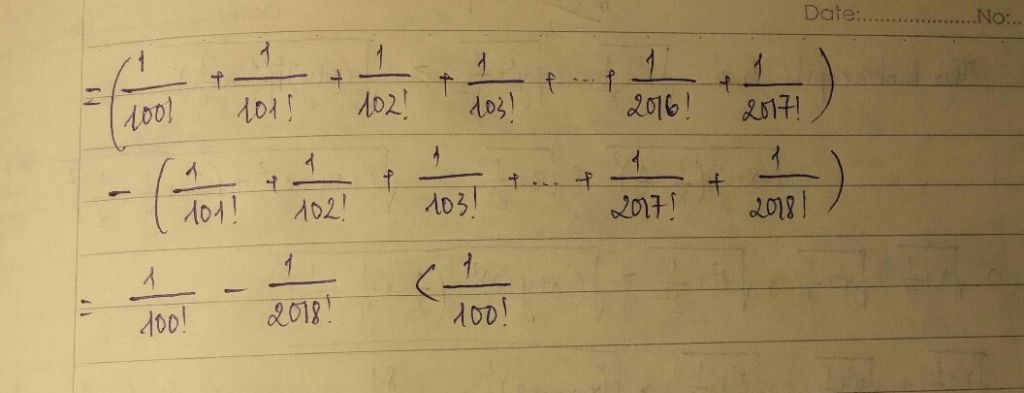 Date:.....................No:...
= ( 1/100! + 1/101! + 1/102! + 1/103! + ... + 1/2016! + 1/2017! )
- ( 1/101! + 1/102! + 1/103! + ... + 1/2017! + 1/2018! )
= 1/100! - 1/2018! < 1/100!